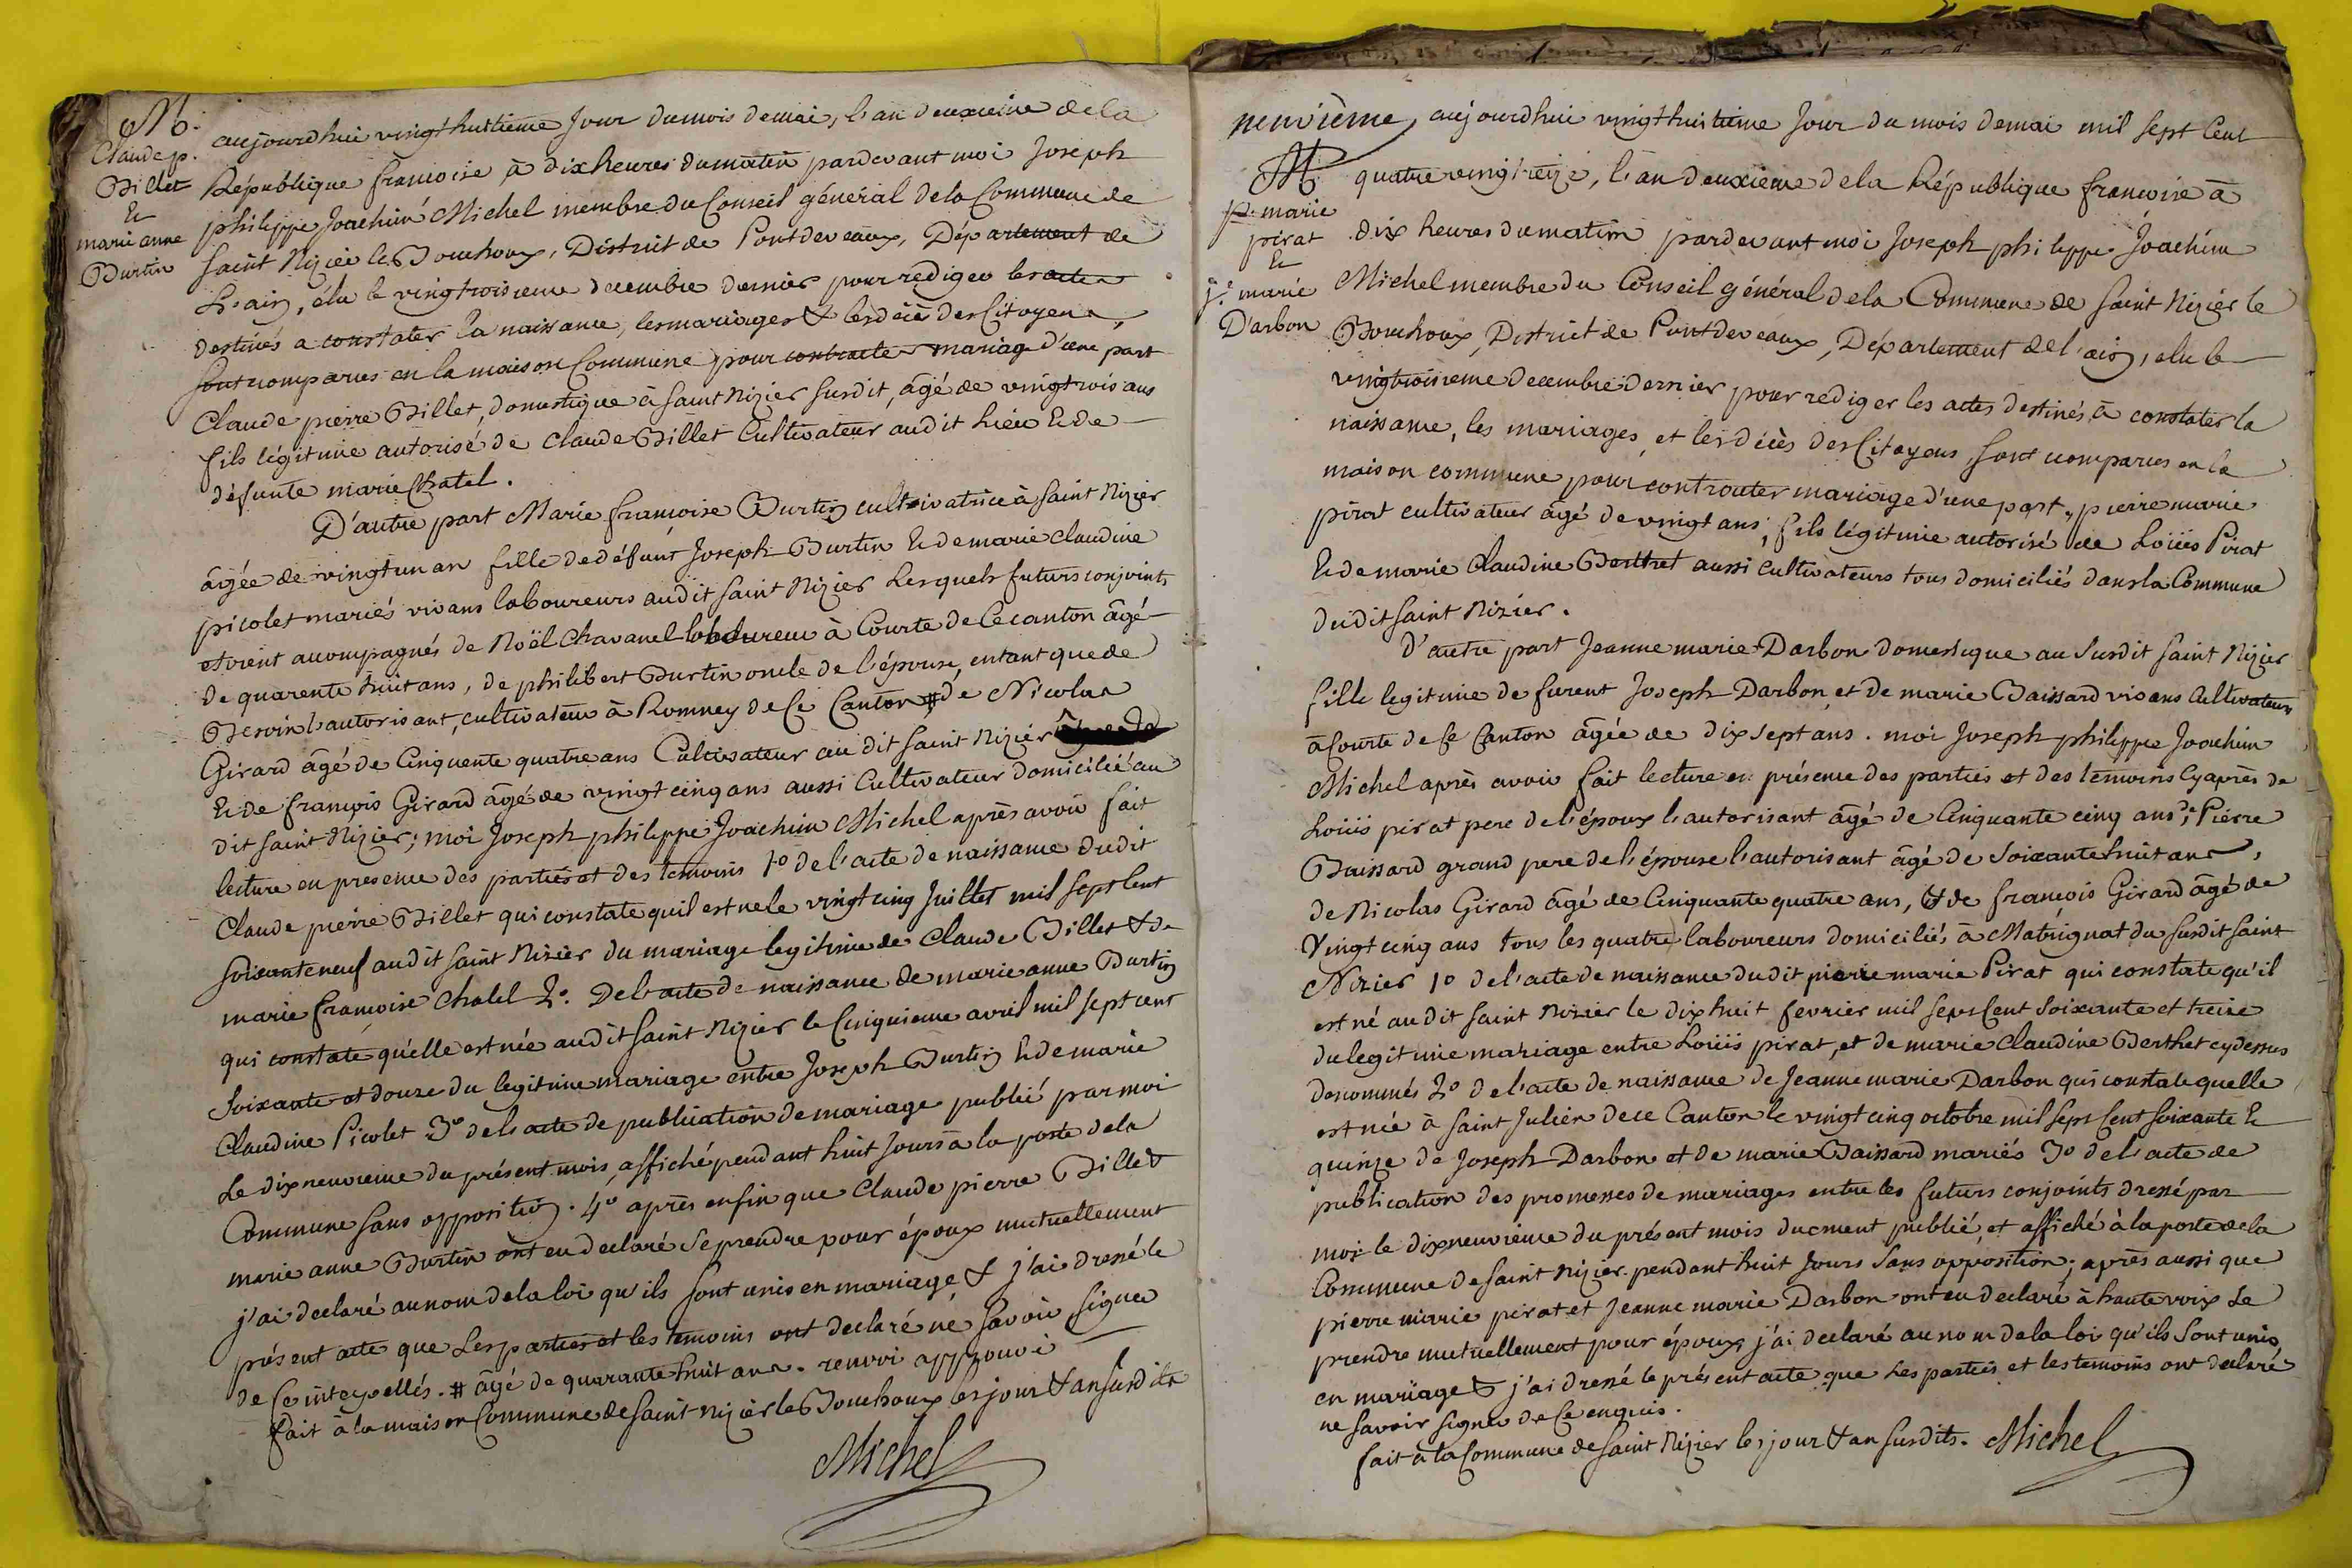 M.
Claude p.
Billet
&
marie anne
Burtin
aujourdhui vingt huitieme Jour du mois de mai, l'an deuxieme de la
République francoise à dix heures du matin pardevant moi Joseph
philippe Joachim Michel membre du Conseil général de la Commune de
Saint Nizier le Bouchoux, District de Pontdeveaux, Département de
L'ain, élu le vingtroisieme decembre dernier pour rediger les actes
destinés a constater la naissance, les mariages & les décès des Citoyens,
sont comparus en la maison Commune pour contracter mariage d'une part
Claude pierre Billet, domestique à Saint Nizier susdit, âgé de vingtrois ans
fils légitime autorisé de Claude Billet Cultivateur audit Lieu & de
défunte marie Chatel.
D'autre part Marie francoise Burtin cultivatrice à Saint Nizier
âgée de vingt un an fille de défunt Joseph Burtin & de marie claudine
picolet mariés vivans laboureurs audit Saint Nizier Lesquels futurs conjoints
etoient accompagnés de Noël Chavanel laboureur à Courte de Ce canton âgé
de quarente huit ans, de philibert Burtin oncle de l'épouse, entant que de
Besoin l'autorisant, cultivateur à Romney de Ce Canton # de Nicolas
Girard âgé de Cinquente quatre ans Cultivateur au dit Saint Nizier
& de françois Girard âgé de vingt cinq ans aussi Cultivateur domicilié au
dit Saint Nizier; moi Joseph philippe Joachim Michel après avoir fait
lecture en presence des parties et des temoins 1º de l'acte de naissance dudit
Claude pierre Billet qui constate quil est né le vingt cinq Juillet mil sept Cent
soixante neuf audit Saint Nizier du mariage legitime de Claude Billet & de
marie francoise Chatel 2º. De l'acte de naissance de marie anne Burtin
qui constate qu'elle est née audit Saint Nizier le Cinquieme avril mil sept cent
Soixante et douze du legitime mariage entre Joseph Burtin & de marie
Claudine Picolet 3º de l'acte de publication de mariage publié par moi
Le dix neuvieme du présent mois, affiché pendant huit Jours à la porte de la
Commune sans opposition. 4º après enfin que Claude pierre Billet
marie anne Burtin ont eu declaré Se prendre pour époux mutuellement
j'ai declaré au nom de la loi qu'ils sont unis en mariage & j'ai dressé le
présent acte que Les parties et les temoins ont declaré ne Savoir Signer
de Ce interpellés. # âgé de quarante huit ans. renvoi approuvé
fait à la maison Commune de Saint Nizier le Bouchoux les jour & an susdits
Michel
neuvième, aujourdhui vingt huitieme Jour du mois de mai mil sept Cent
M.
p. marie
pirat
&
j.e marie
Darbon
quatre vingt treize, l'an deuxieme de la République francoise à
dix heures du matin pardevant moi Joseph philippe Joachim
Michel membre du Conseil général de la Commune de Saint Nizier le
Bouchoux, District de Pontdeveaux, Département de l'ain, elu le
vingtroisieme decembre dernier pour rediger les actes destinés à constater la
naissance, les mariages, et les décès des Citoyens sont comparus en la
maison commune pour contracter mariage d'une part, pierre marie
pirat cultivateur âgé de vingt ans, fils légitime autorisé de Loüis Pirat
& de marie Claudine Berthet aussi Cultivateurs tous domiciliés dans la Commune
dudit Saint Nizier.
D'autre part Jeanne marie Darbon domestique au Susdit Saint Nizier
fille legitime de furent Joseph Darbon et de marie Baissard vivans Cultivateurs
à Courte de Ce Canton âgée de dix sept ans. moi Joseph philippe Joachim
Michel après avoir fait lecture en présence des parties et des temoins Cy après de
Loüis pirat pere de l'époux l'autorisant âgé de Cinquante cinq ans, de Pierre
Baissard grand pere de l'épouse l'autorisant âgé de Soixante huit ans,
de Nicolas Girard âgé de Cinquante quatre ans, & de françois Girard âgé de
Vingt cinq ans tous les quatre laboureurs domiciliés à Matrignat du susdit Saint
Nizier 1º de l'acte de naissance dudit pierre marie Pirat qui constate qu'il
est né au dit Saint Nizier le dix huit fevrier mil sept Cent Soixante et treize
du legitime mariage entre Loüis pirat, et de marie Claudine Berthet cy dessus
denommés 2º de l'acte de naissance de Jeanne marie Darbon qui constate quelle
est née à Saint Julien de ce Canton le vingt cinq octobre mil sept Cent Soixante &
quinze de Joseph Darbon et de marie Baissard mariés 3º de l'acte de
publication des promesses de mariages entre les futurs conjoints dressé par
moi le dix neuvieme du présent mois duement publié, et affiché à la porte de la
Commune de Saint Nizier pendant huit Jours Sans opposition; après aussi que
pierre marie pirat et Jeanne marie Darbon ont eu declaré à haute voix Se
prendre mutuellement pour époux, j'ai declaré au nom de la loi qu'ils Sont unis
en mariage & j'ai dressé le présent acte que Les parties et les temoins ont declaré
ne Savoir Signer de Ce enquis.
fait à la Commune de Saint Nizier les jour & an susdits. Michel